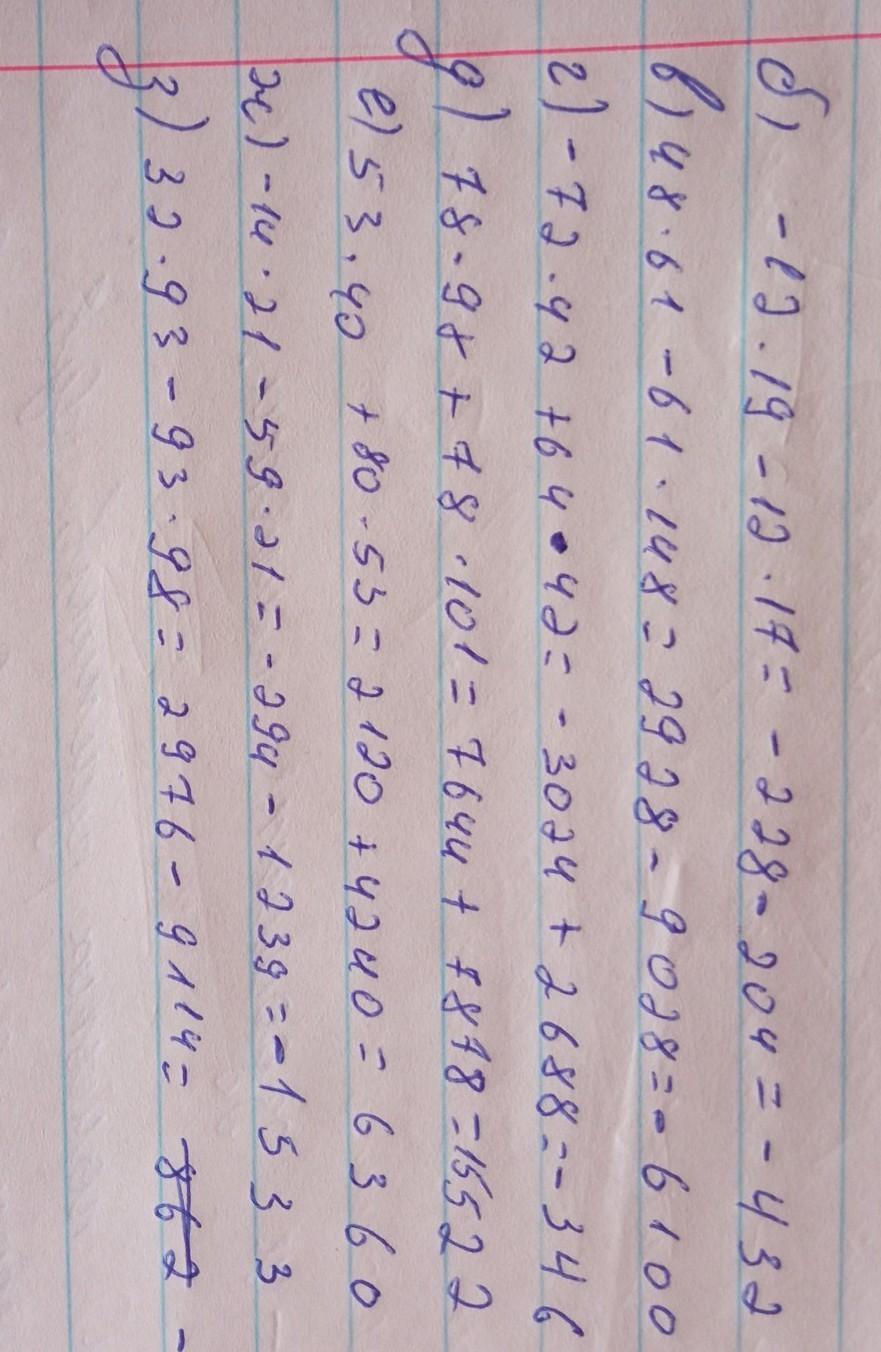 б) -12·19-12·17=-228-204=-432
в) 48·61-61·148=2928-9028=-6100
г) -72·42+64·42=-3024+2688=-346
д) 78·98+78·101=7644+7878=15522
е) 53·40+80·53=2120+4240=6360
ж) -14·21-59·21=-294-1239=-1533
з) 32·93-93·98=2976-9114= -